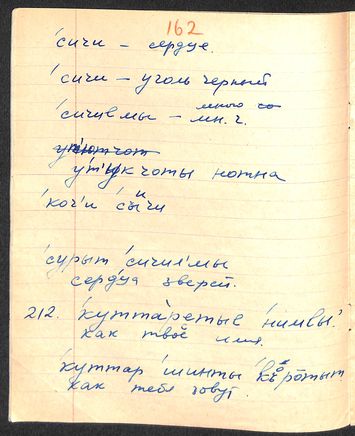 162
'сичи – сердце.
'сичи – уголь черный
'сичиемы – мн. ч.
много со
ут'ык чоты нотна
'коч'и 'сычи
и
'сурыт 'сичиемы
сердца зверей.
212. 'куттаретые 'нимвы?
как твоё имя.
'куттар 'шинты къ̄ротыт
как тебя зовут.